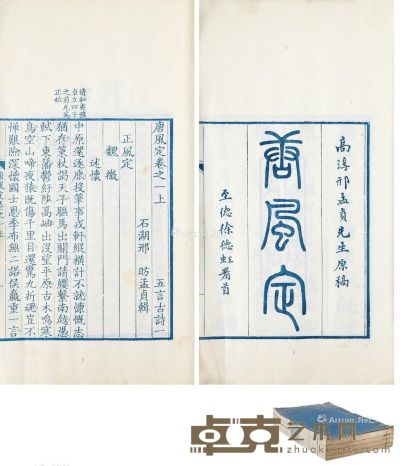 高淳邢孟貞先生原稿
唐風定
至德徐德虹署首
唐風定卷之一上 五言古詩一
石湖邢 昉孟貞輯
正風定
魏徵
述懷
清和夷雅
卓立四子
之前允爲
正始
中原還逐鹿投筆事戎軒縱橫計不就慷慨志
猶存策杖謁天子驅馬出關門請纓繫南越憑
軾下東藩鬱紆陟高岫出沒望平原古木鳴寒
鳥空山啼夜猿既傷千里目還驚九折魂豈不
憚艱險深懷國士恩季布無二諾侯嬴重一言
卓克艺术网